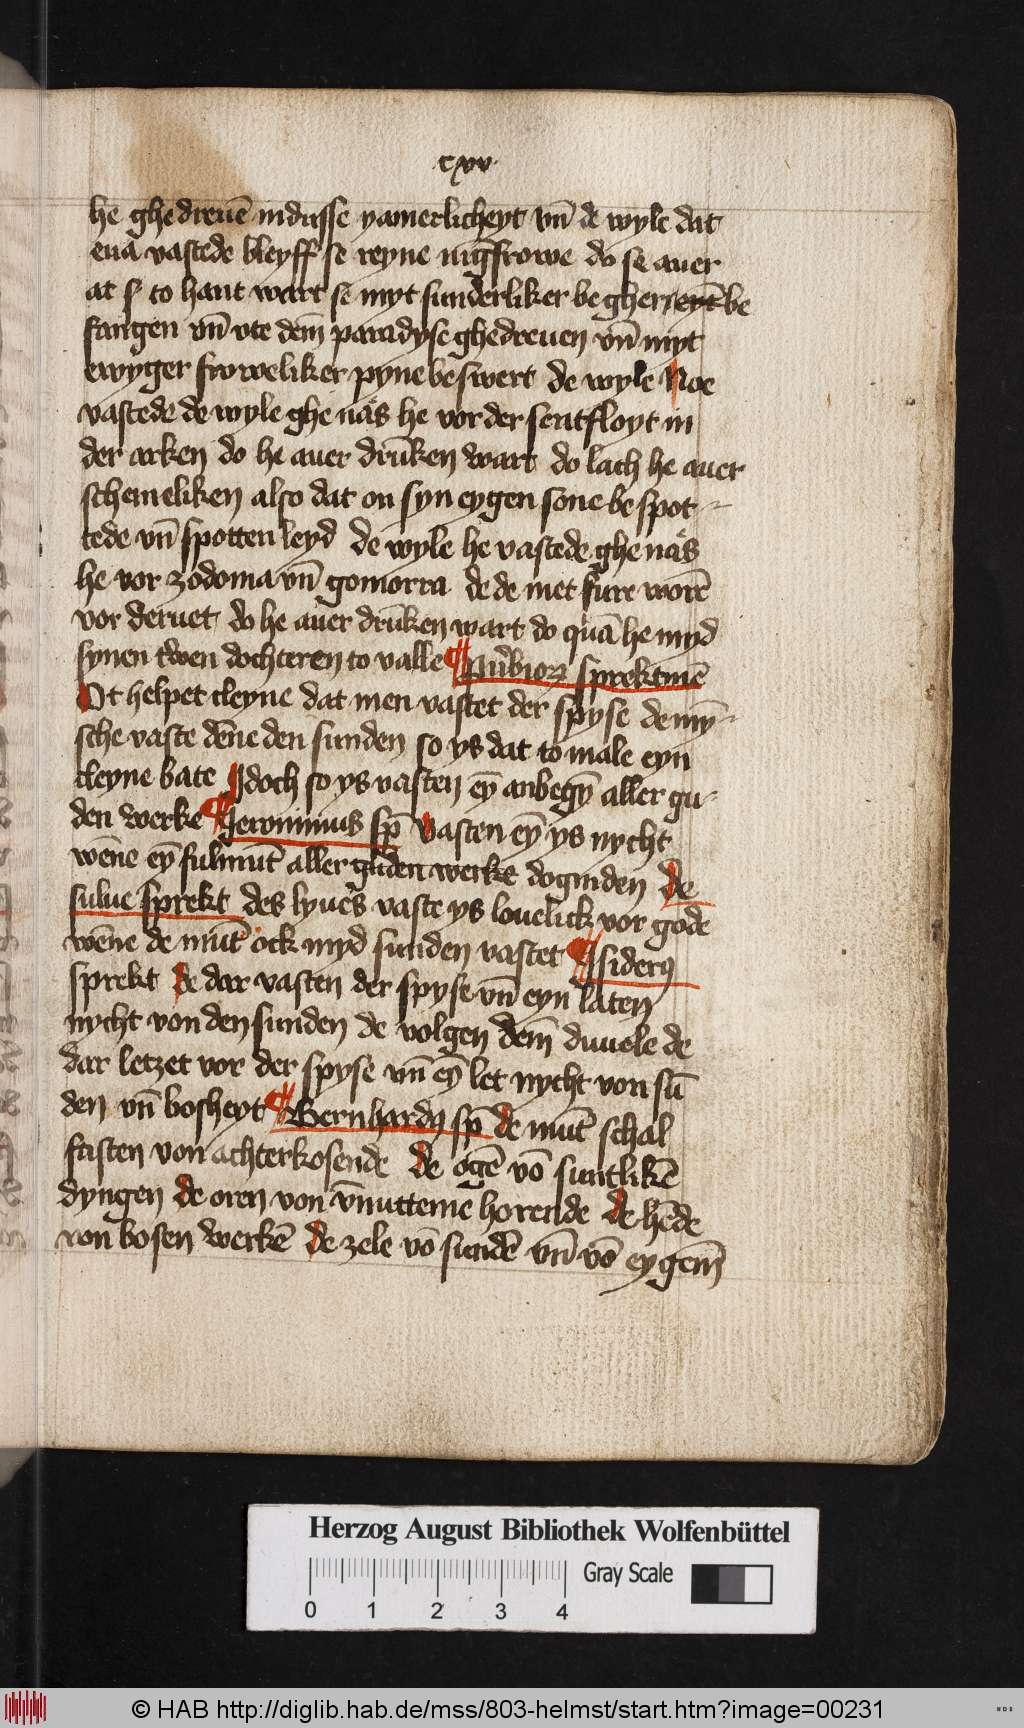 cxv
he ghedreuē in dusse yamerlicheyt vn̄ de wyle dat
eua vastede bleyff se reyne iūgfrowe do se auer
at so to hant wart se myt sunderliker begherreyt be
fangen vn̄ vte dem̄ paradyse ghedreuen vn̄ myt
ewyger frowweliker pyne beswert de wyle Noe
vastede de wyle ghenas he vor der sentfloyt in
der arken do he auer drūken wart do lach he auer
schemeliken also dat on syn eygen sone be spot-
tede vn̄ spotten leyd de wyle he vastede ghenas
he vor zodoma vn̄ gomorra de de met fure worē
vor deruet do he auer drūken wart do quā he myd
synen twen dochteren to valle ¶ sprekt
Ot helpet cleyne dat men vastet der spyse de mȳ-
sche vaste dēne den sunden so ys dat to male eyn
cleyne bate Jdoch so ys vasten eȳ anbegȳ aller gu-
den werke ¶ Jeronimus sp̄ vasten eȳ ys nycht
wēne eȳ fulmūt aller guden werke doginden de
sulue sprekt des lyues vaste ys louelick vor gode
wēne de mūt ock myd sunden vastet ¶ Jsiderꝯ
sprekt de dar vasten der spyse vn̄ eyn laten
nycht von den sunden de volgen dem̄ duuele de
dar letzet vor der spyse vn̄ eȳ let nycht von sū
den vn̄ bosheyt ¶ Bernhardꝯ sp̄ de mūt schal
fasten von achterkosende de ogē vō suntlikē
dyngen de oren von vnnutteme horende de hēde
von bosen werkē de zele vō sundē vn̄ vō eygem̄
Herzog August Bibliothek Wolfenbüttel
Gray Scale
0 1 2 3 4
© HAB http://diglib.hab.de/mss/803-helmst/start.htm?image=00231